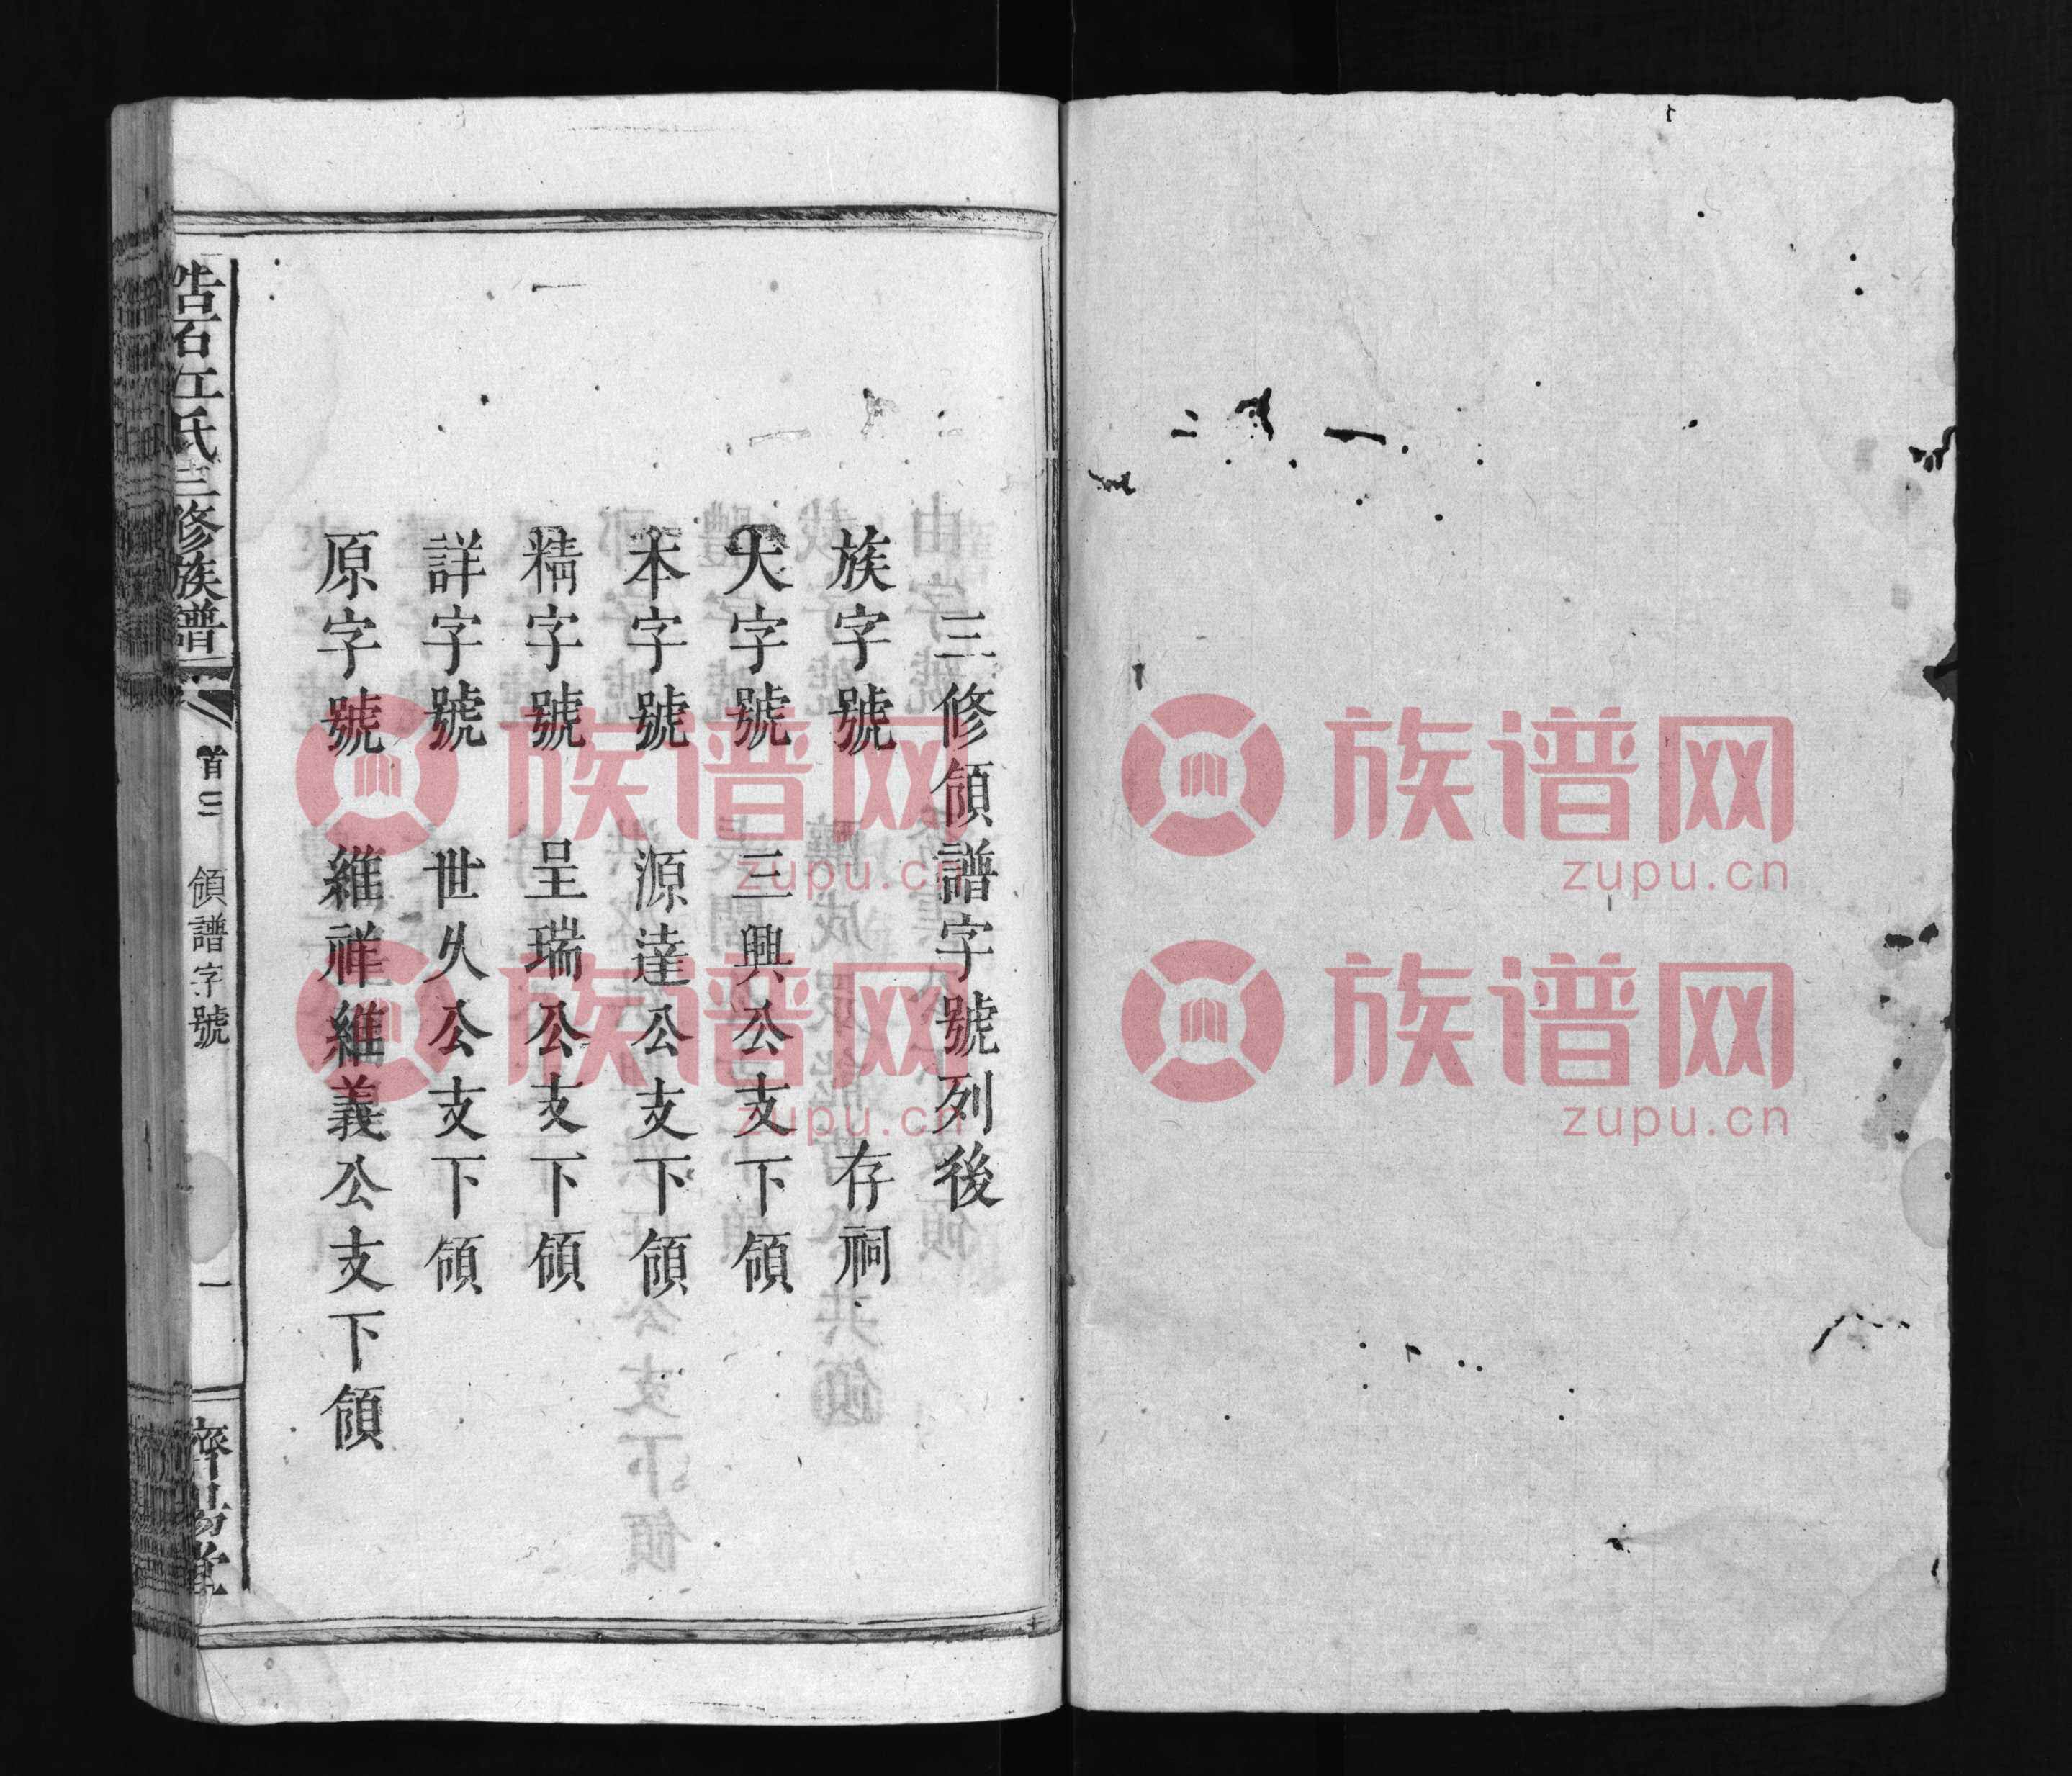 三修領譜字號列後
族字號 存祠
大字號 三興公支下領
本字號 源達公支下領
精字號 呈瑞公支下領
詳字號 世久公支下領
原字號 維祥維義公支下領
石江氏三修族譜
首三
領譜字號
一
濟陽堂
族谱网
zupu.cn
族谱网
zupu.cn
族谱网
zupu.cn
族谱网
zupu.cn